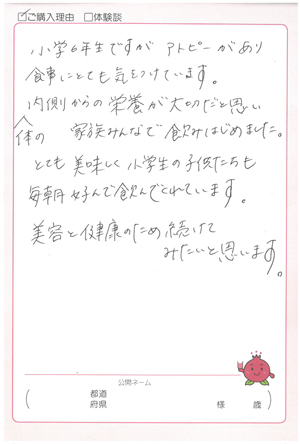 ☑ご購入理由 □体験談
小学6年生ですが アトピーがあり
食事にとても気をつけています。
体の内側からの栄養が大切だと思い
家族みんなで飲みはじめました。
とても美味しく小学生の子供たちも
毎朝好んで飲んでくれています。
美容と健康のため続けて
みたいと思います。
公開ネーム
( 都道府県 様 歳 )